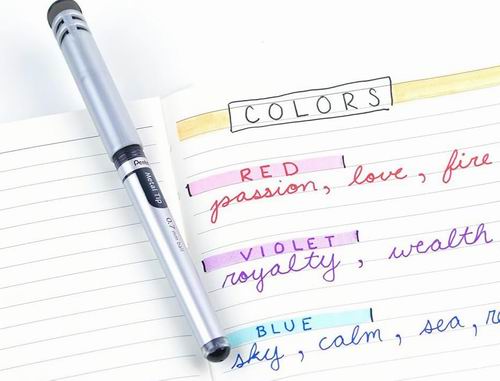 COLORS
RED
passion, love, fire
VIOLET
royalty, wealth
BLUE
sky, calm, sea,
Metal Tip
0.7